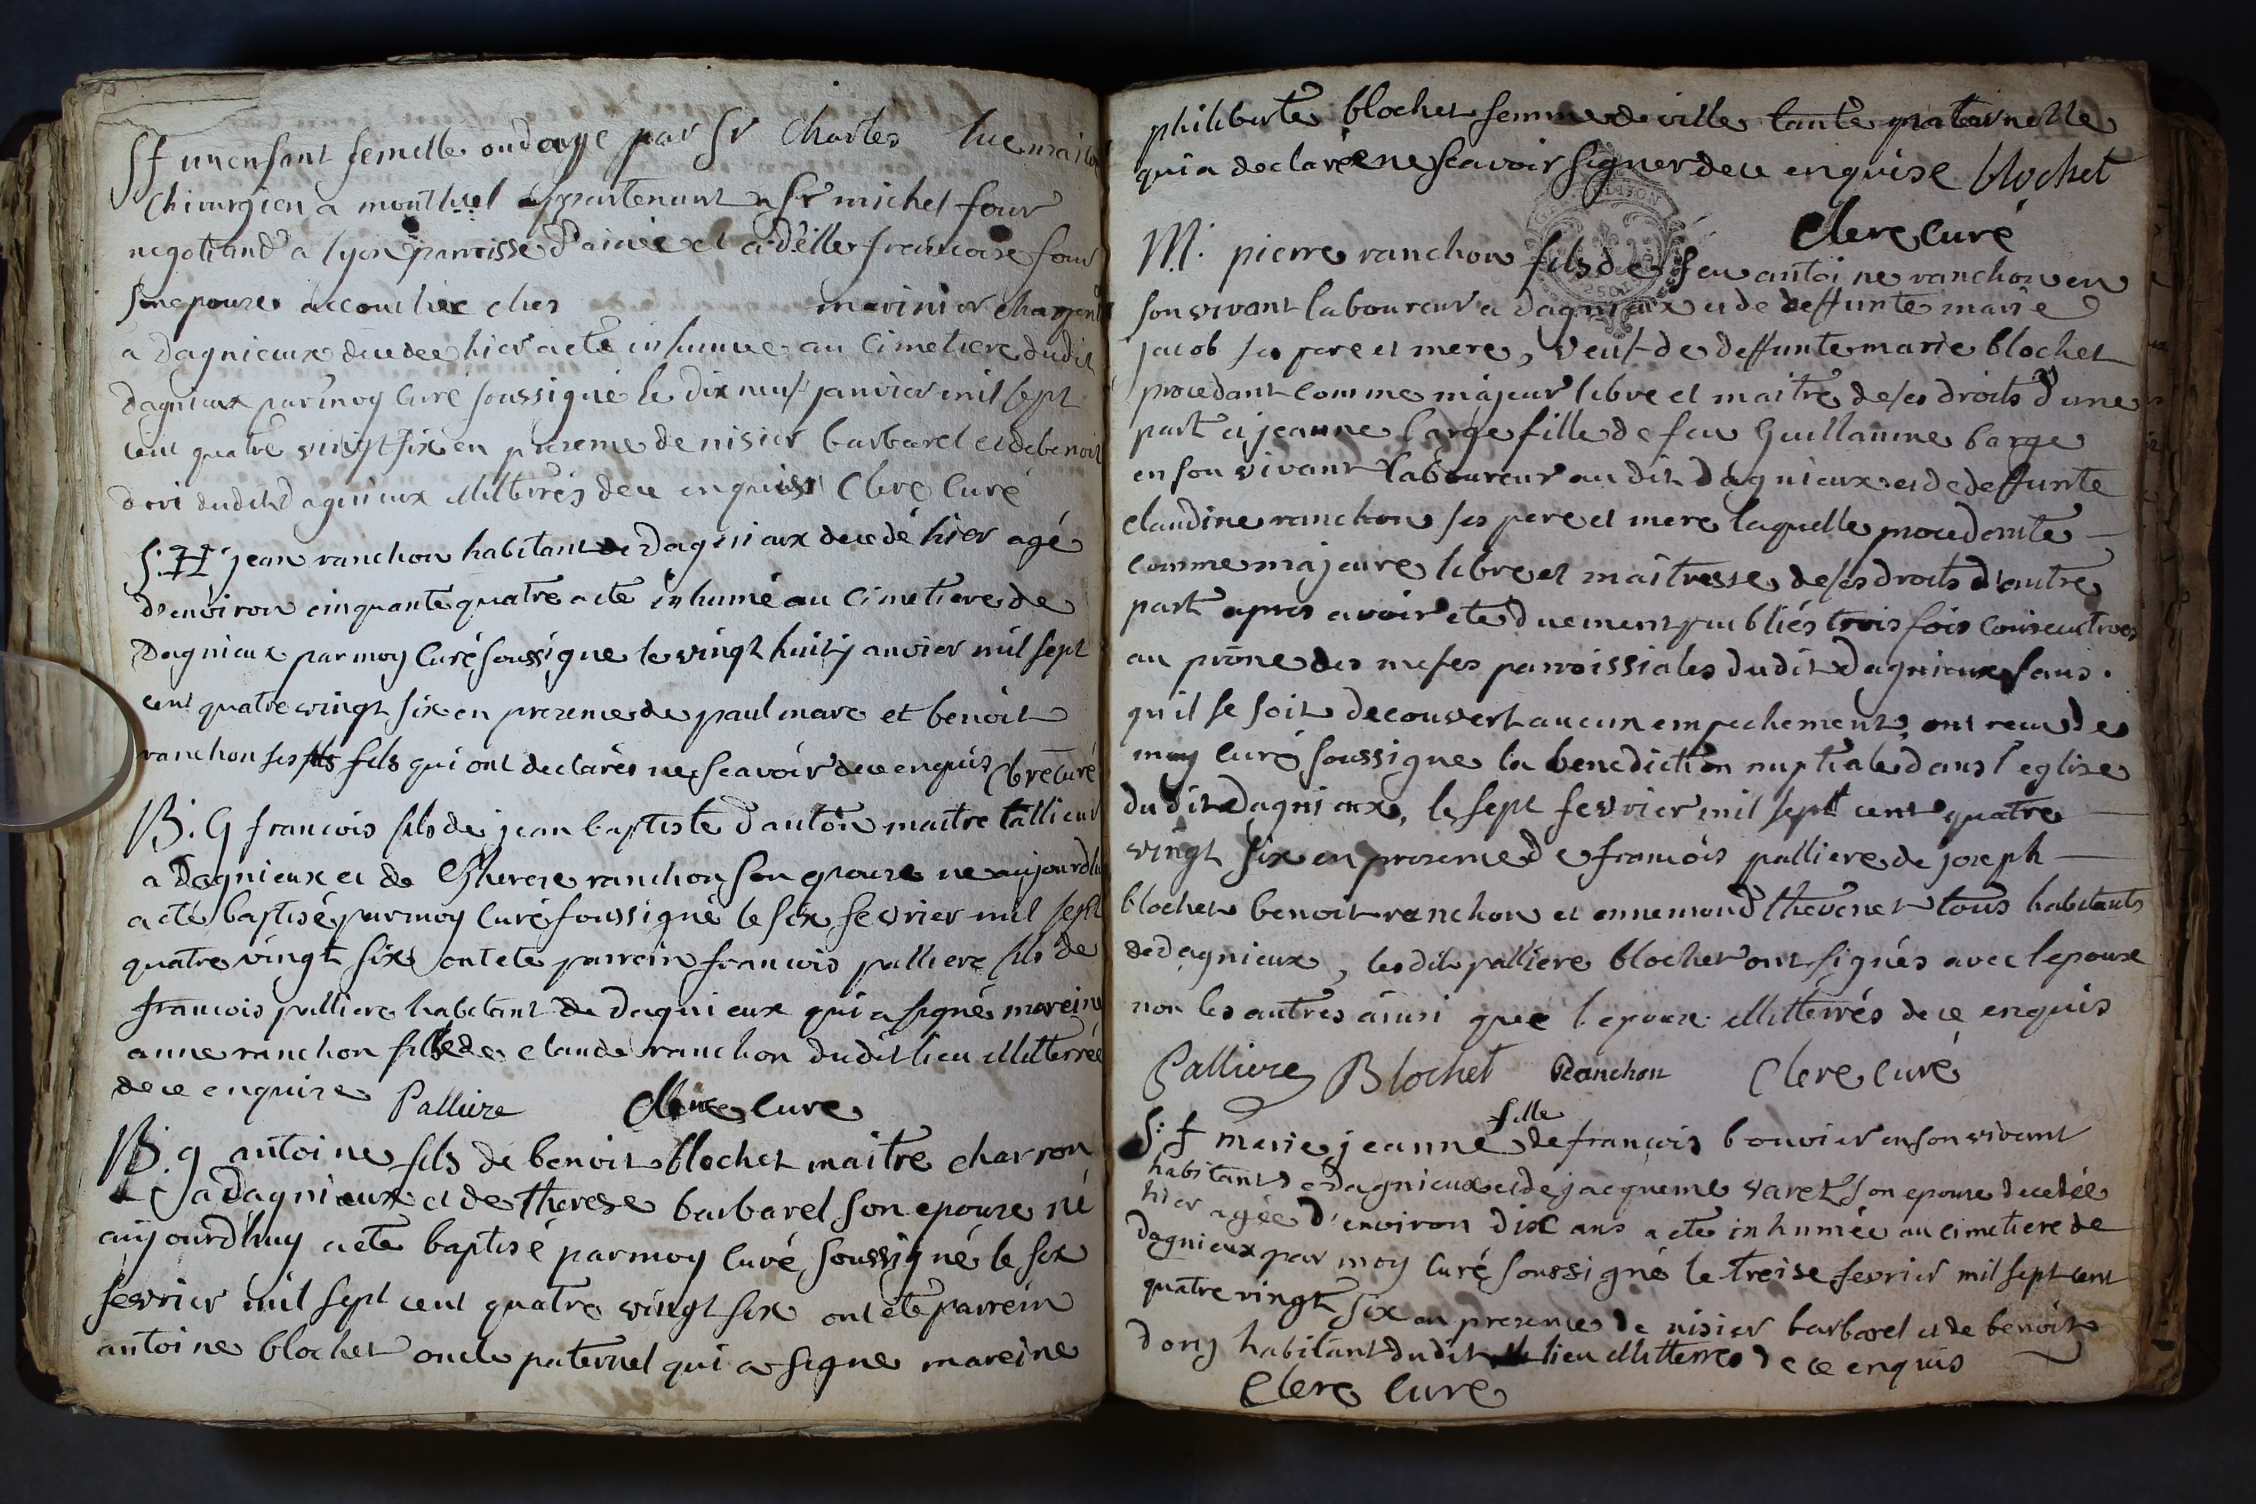 S f un enfant femelle ondoyé par Sr Charles luc
Chirurgien a montluel appartenant a Sr michel four
negotiand a lyon parroisse d'ainée et a d'elle francoise four
son epouse accouchée ches marinier
a dagnieux decedée hier a eté inhumée au Cimetiere dudit
dagnieux par moy Curé soussigné le dix neuf janvier mil sept
cent quatre vingt six en presence de nisier barbarel et de benoit
dori dudit dagnieux illitterés de ce enquis Clerc Curé
S. H jean ranchon habitant de Dagnieux decedé hier agé
d'environ cinquante quatre a eté inhumé au Cimetiere de
Dagnieux par moy Curé soussigne le vingt huit janvier mil sept
cent quatre vingt six en presence de paul marc et benoit
ranchon ses fils qui ont declarés ne scavoir de ce enquis Clerc Curé
B. G francois fils de jean baptiste d'anton maitre tallieur
a Dagnieux et de therese ranchon son epouse ne aujourdhu
a eté baptisé par moy Curé soussigné le six fevrier mil sept
quatre vingt six ont ete parrein francois palliere fils de
francois palliere habitant de dagnieux qui a signé mareine
anne ranchon fille de claude ranchon dudit lieu illitterrée
de ce enquise Palliere Clerc Cure
B. g antoine fils de benoit blochet maitre charron
a Dagnieux et de therese barbarel son epouse né
aujourd'huy a eté baptisé par moy Curé soussigné le six
fevrier mil sept cent quatre vingt six ont ete parrein
antoine blochet oncle paternel qui a signe mareine
philiberte blochet femme deville tante paternelle
qui a declarée ne scavoir signer de ce enquise blochet
Clerc Curé
M. pierre ranchon fils de feu antoine ranchon en
son vivant laboureur a dagnieux et de deffunte marie
jacob ses pere et mere, veuf de deffunte marie blochet
procedant comme majeur libre et maitre de ses droits d'une
part et jeanne barge fille de feu Guillaume barge
en son vivant laboureur au dit dagnieux et de deffunte
claudine ranchon ses pere et mere laquelle procedante
comme majeure libre et maitresse de ses droits d'autre
part apres avoir eté duement publiés trois fois consecutives
au prône des messes parroissiales dudit dagnieux sans
qu'il se soit decouvert aucun empechement, ont recu de
moy Curé soussigne la benediction nuptiale dans l'eglise
dudit dagnieux, le sept fevrier mil sept cent quatre
vingt six en presence de francois palliere de joseph
blochet benoit ranchon et ennemond thevenet tous habitants
de dagnieux, les dits palliere blochet ont signés avec l'epoux
non les autres ainsi que l'epouse illitterrés de ce enquis
Palliere Blochet Ranchon Clerc Curé
S: f marie jeanne fille de francois bouvier en son vivant
habitant a dagnieux et de jacqueme varet son epouse decedée
hier agée d'environ dix ans a eté inhumée au cimetiere de
dagnieux par moy Curé soussigné le treise fevrier mil sept cent
quatre vingt six en presence de nisier barbarel et de benoit
dorij habitant dudit lieu illitterres de ce enquis
Clerc Cure